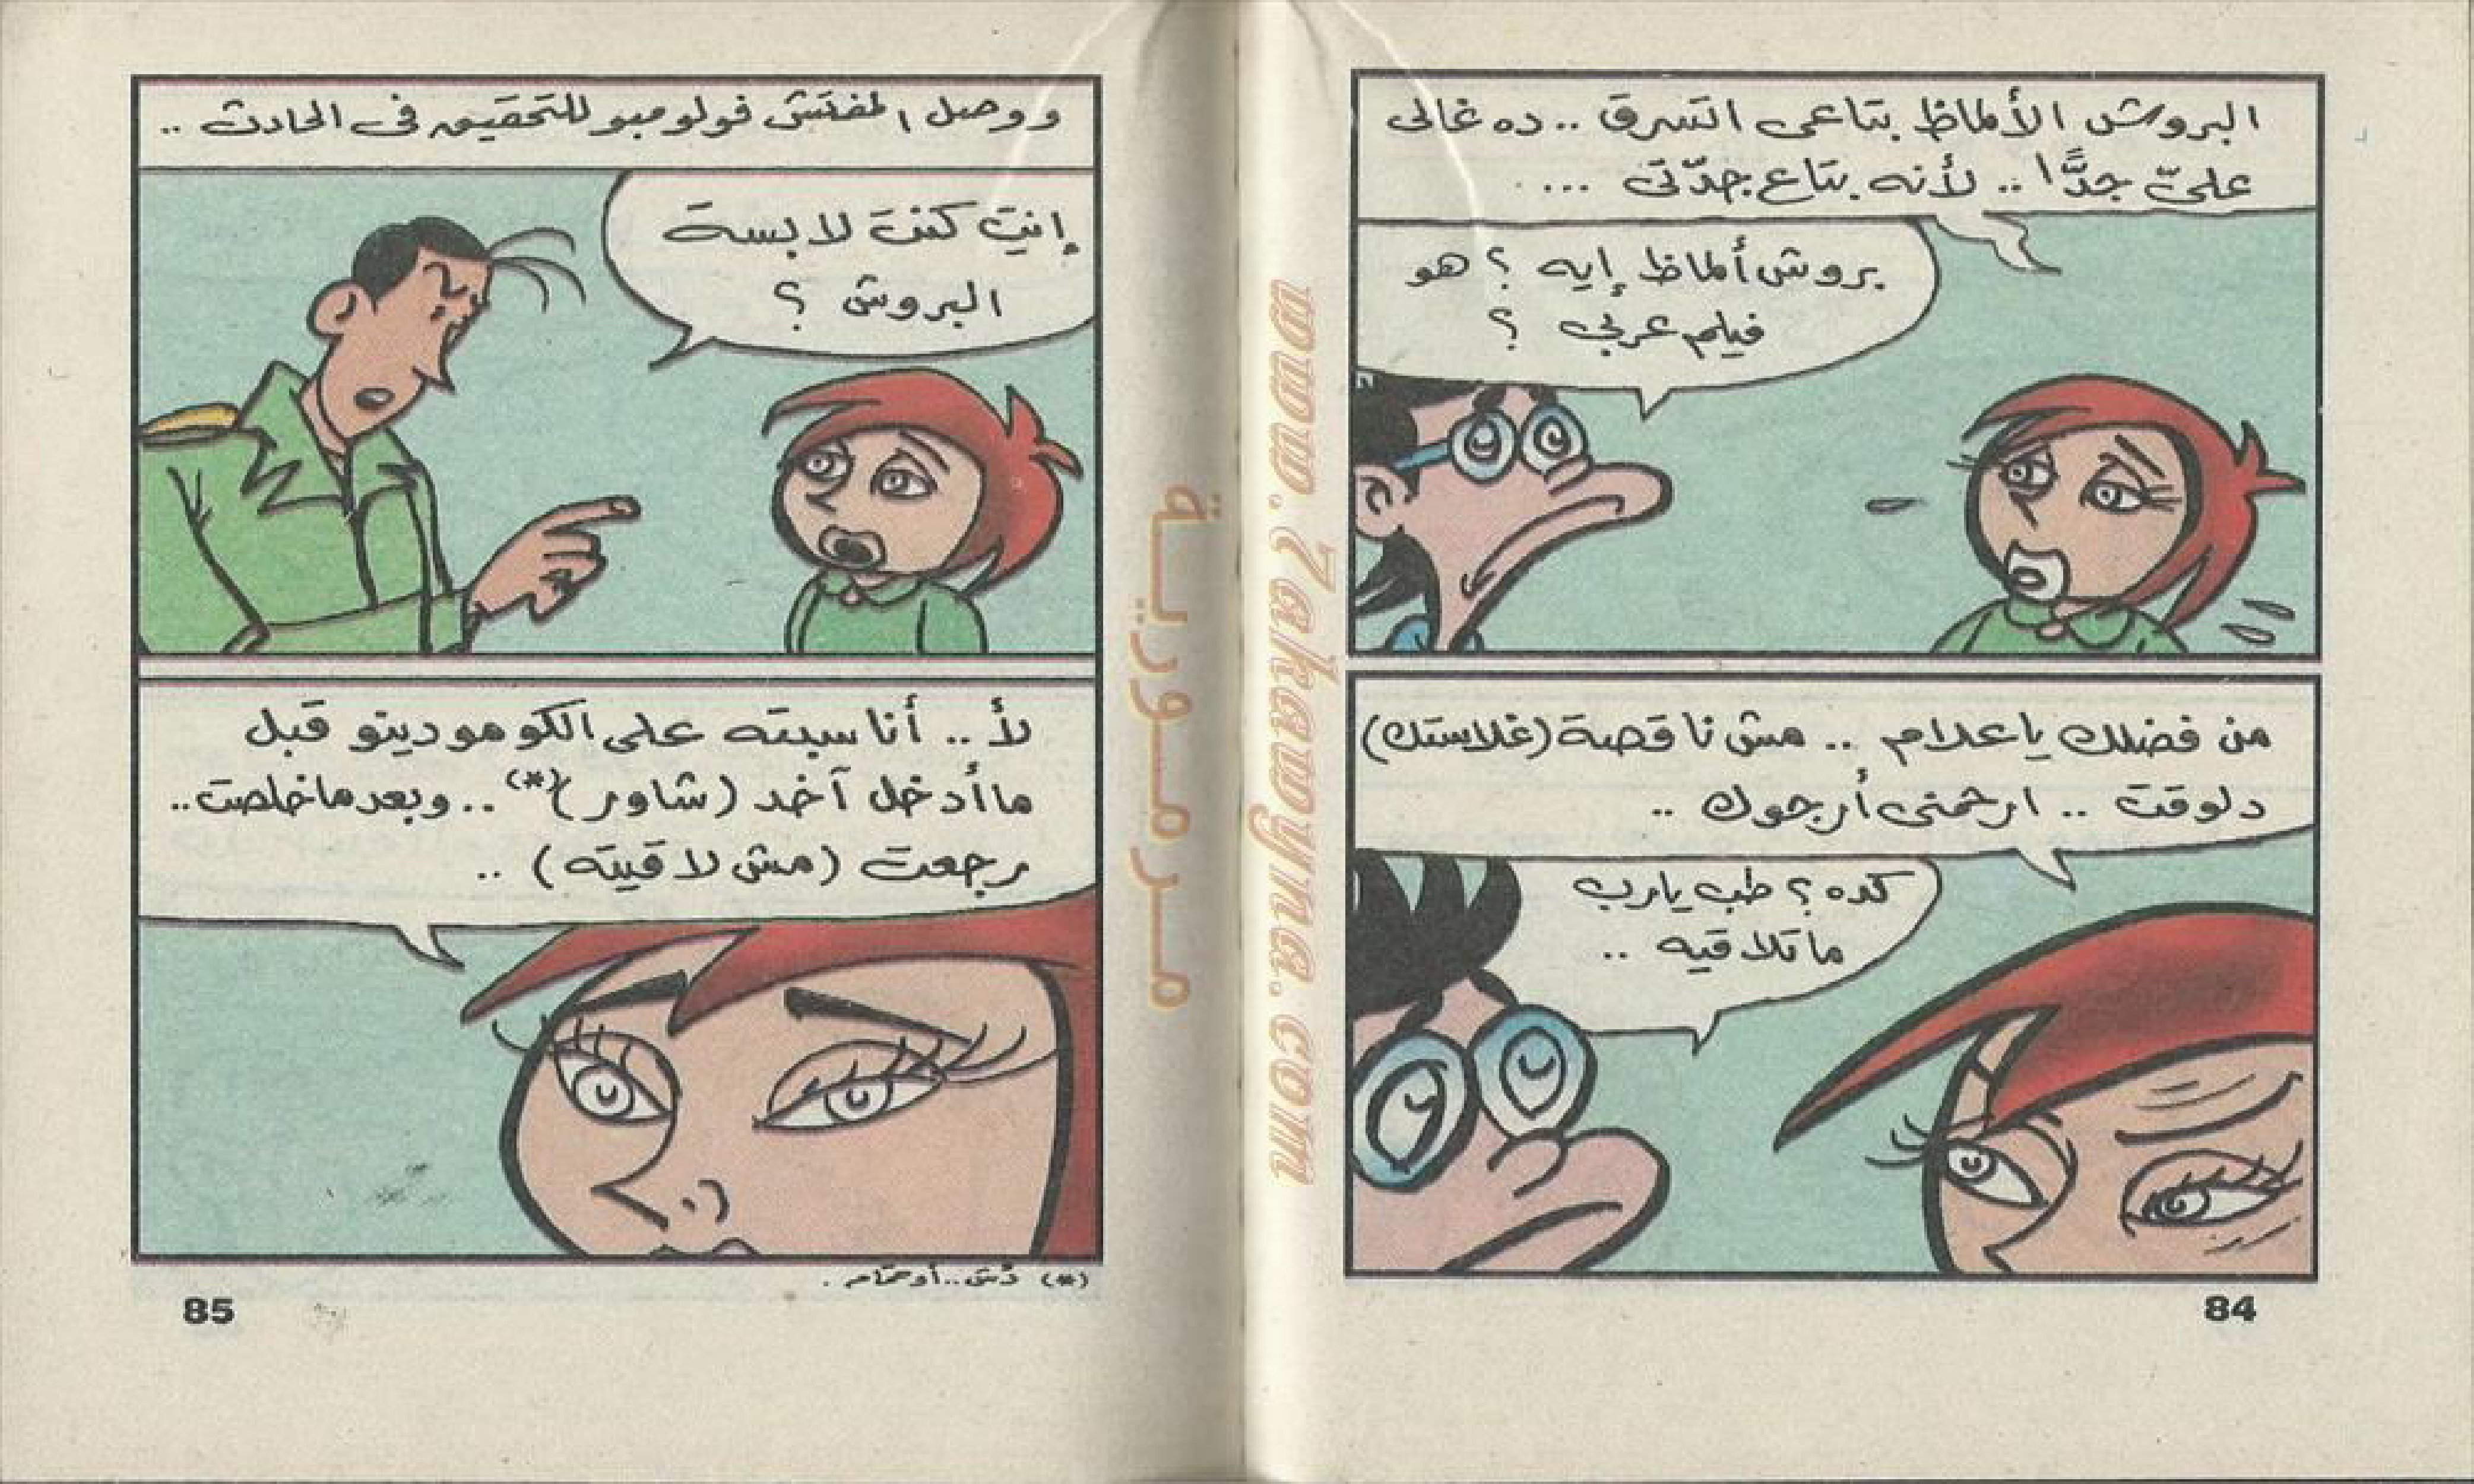 البروش الألماظ بتاعى اتسرق .. ده غالى
علىّ جدًّا .. لأنه بتاع جدّتى ...
بروش ألماظ إيه ؟ هو
فيلم عربى ؟
من فضلك يا علام .. مش ناقصة (غلاستك)
دلوقت .. ارحمنى أرجوك ..
كده ؟ طب يارب
ما تلاقيه ..
84
ووصل المفتش فولومبو للتحقيق فى الحادث ..
إنتِ كنتِ لابسة
البروش ؟
لأ .. أنا سبته على الكومودينو قبل
ما أدخل آخد (شاور)(*) .. وبعد ما خلصت ..
رجعت (مش لاقيته) ..
(*) دُش .. أو حمّام .
85
مرمورية
www.7akawyna.com